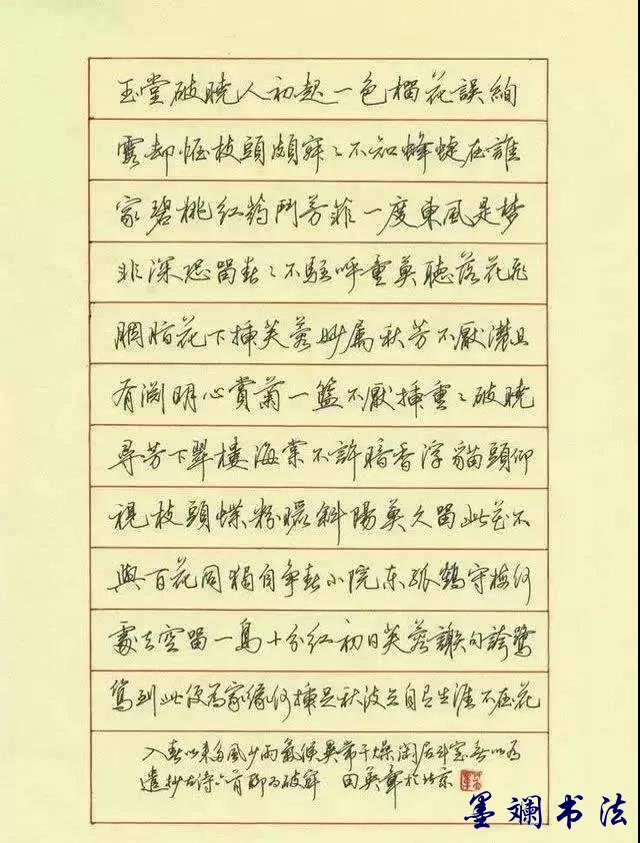 玉堂破曉人初起一色榴花誤絢
霞却恠枝頭頗寂〻不知蜂蜨在誰
家碧桃红药鬥芳菲一度東風是梦
非深恐留春〻不駐呼童莫聽落花飛
胭脂花下插芙蓉妙属秋芳不厭濃且
有渊明心賞菊一籃不厭插重〻破曉
尋芳下翠樓海棠不許暗香浮貓頭仰
視枝頭蝶粉暖斜陽莫久留此花不
與百花同獨自争春小院东孤鶴守梅何
處去空留一鳥十分红初日芙蓉謝句誇鷺
鸶到此便為家缘何插足秋波立自是生涯不在花
入春以来多風少雨氣候異常干燥闲居斗室無以為
遣抄古诗六首聊為破寂 田英章於北京
墨斓书法